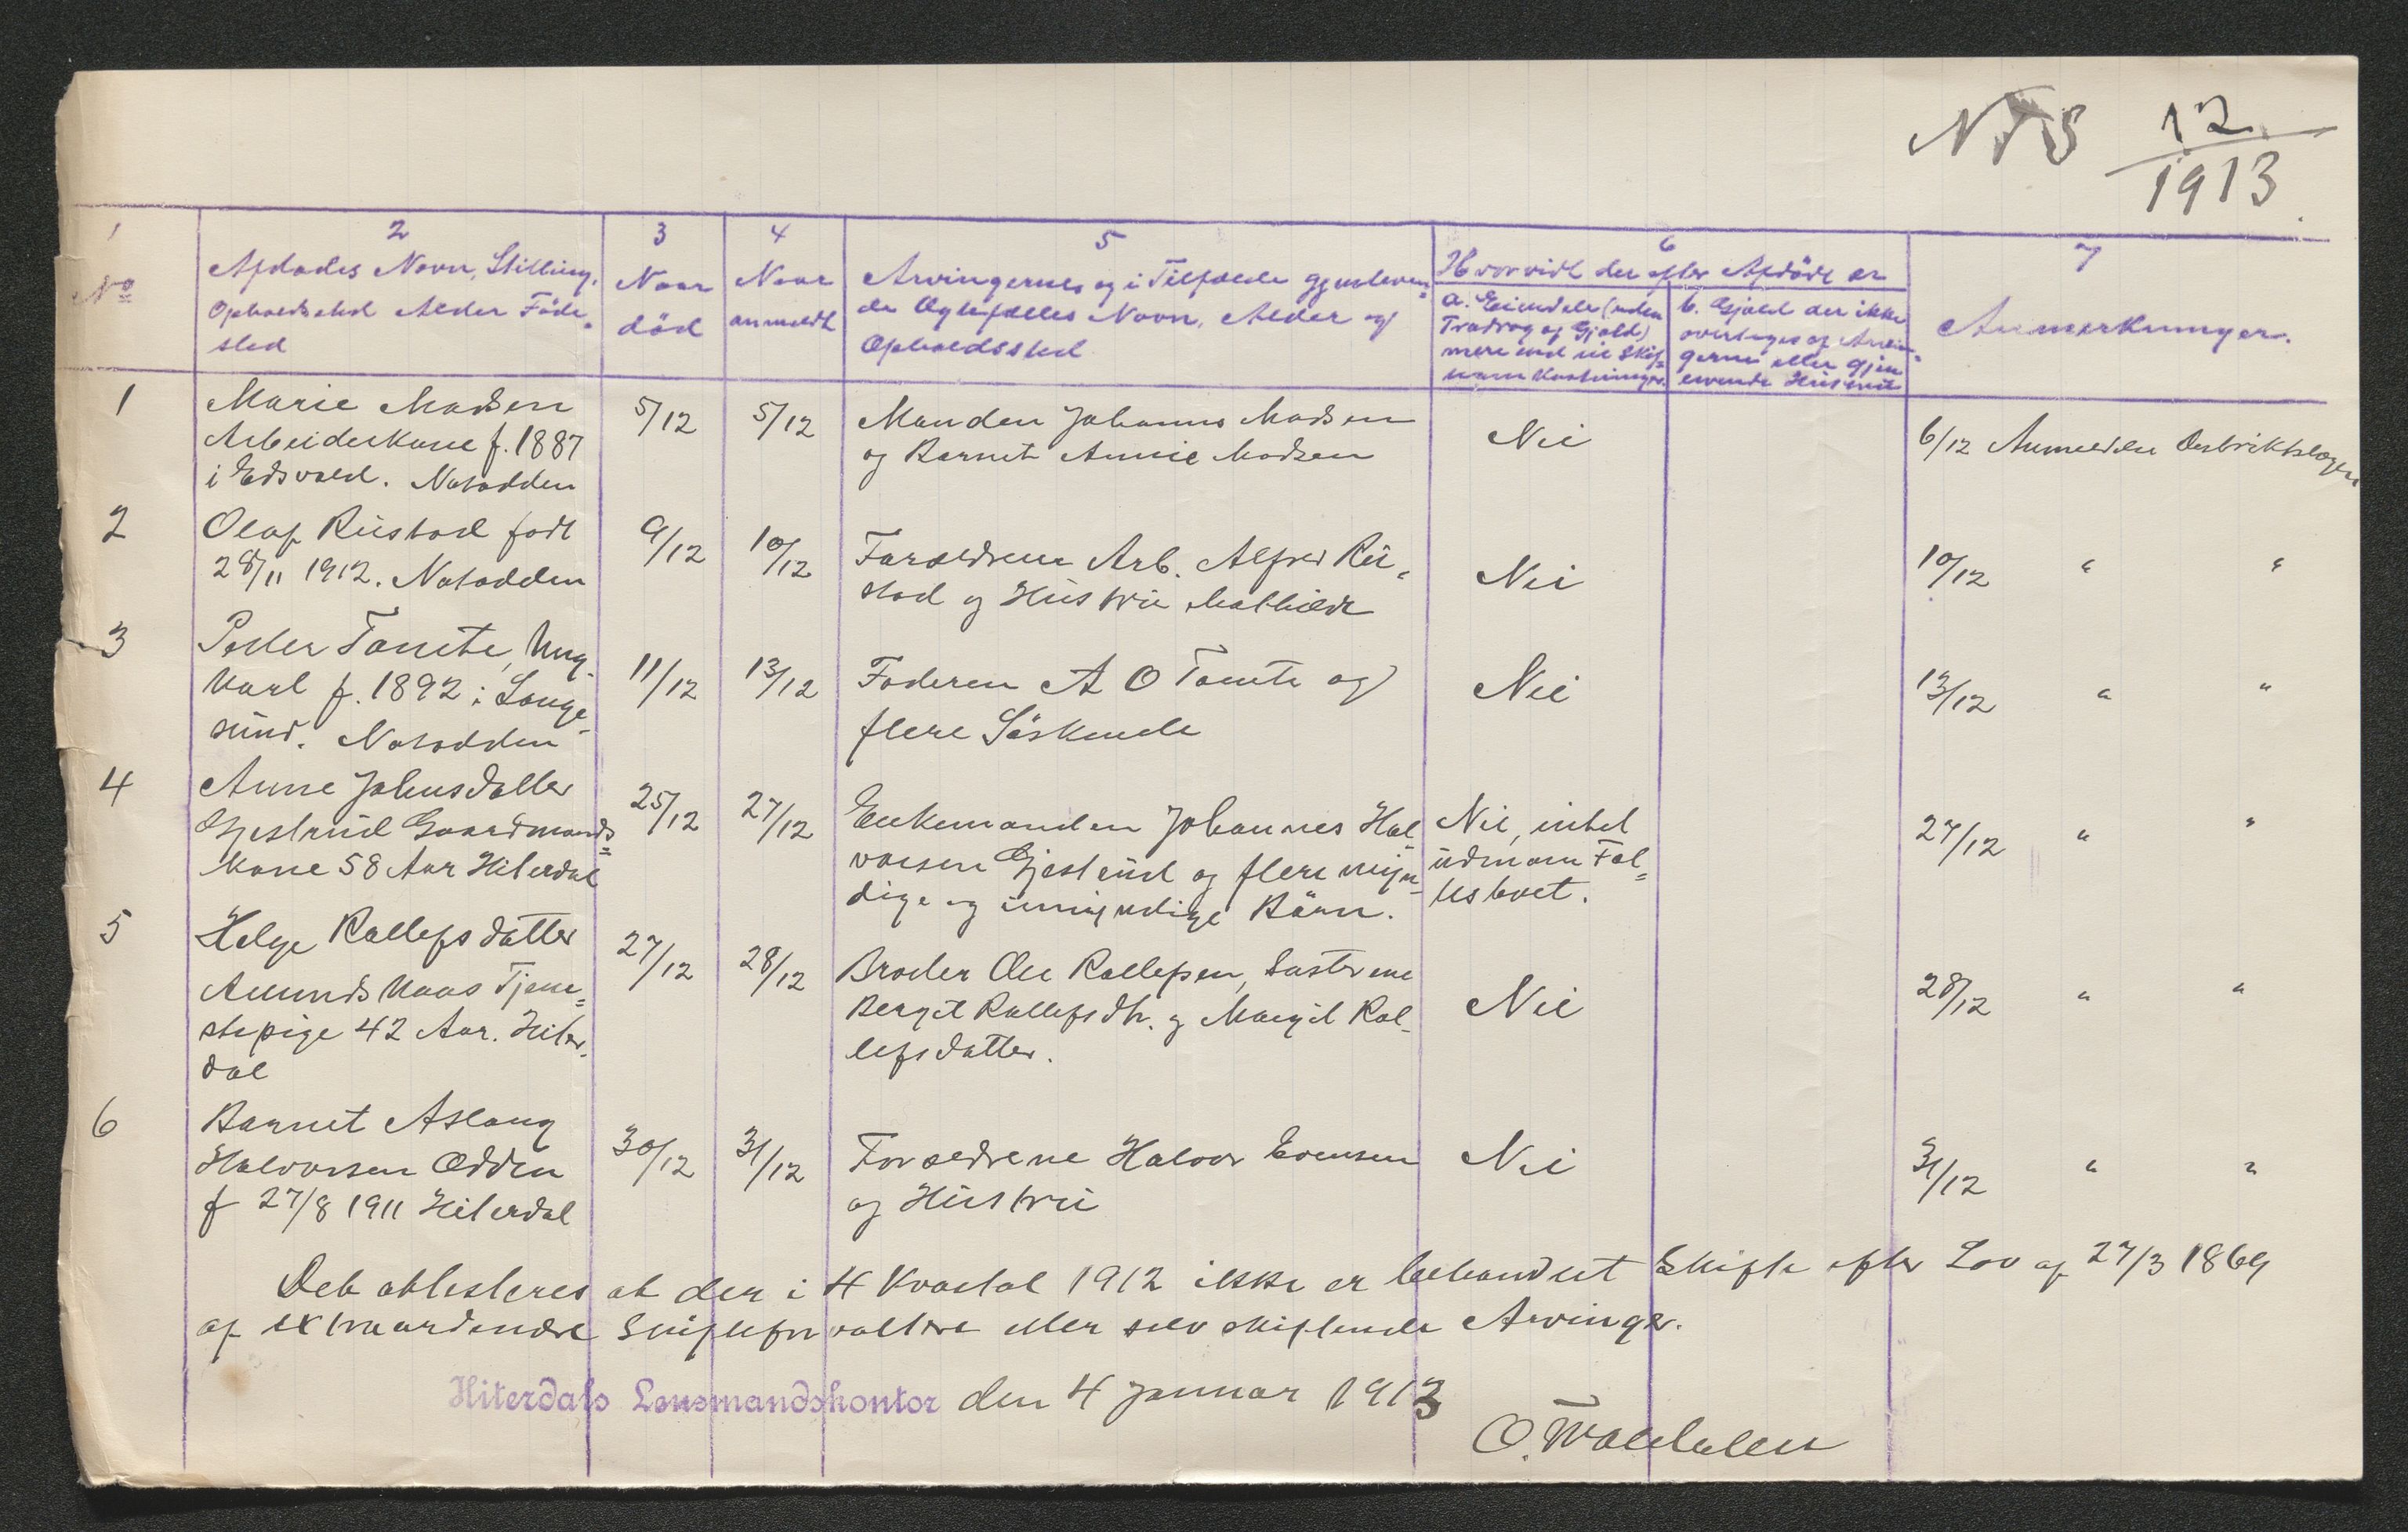 12
1913
1 2 3 4 5 6 7
No
Afdødes Navn, Stilling,
Opholdssted Alder Føde-
sted
Naar
död
Naar
anmeldt
Arvingernes og i Tilfælde gjenleven-
de Ægtefælles Navn, Alder og
Opholdssted
Hvorvidt der efter Afdöde er
a. Eiendele (uden
Fradrag af Gjæld)
mere end til Skif-
b. Gjæld der ikke
overtages af Arvin-
gerne eller gjen
levende Hustru
Anmerkninger.
1 Marie Madsen
Arbeiderkone f. 1887
i Edsvold. Notodden
5/12
5/12
Manden Johannes Madsen
og Barnet Annie Madsen
Nei
6/12 Anmeldtes Destriktslægen
2 Olaf Riistad født
28/11 1912. Notodden
9/12
10/12
Forældrene Arb. Alfred Rii-
stad og Hustru Mathilde
Nei
10/12 " "
3 Peder Tomte, Ung-
karl f. 1892 i Lange-
sund. Notodden
11/12
13/12
Faderen A O Tomte og
flere Söskende
Nei
13/12 " "
4 Anne Johnsdatter
Gjestrud Gaardmands-
kone 58 Aar Hiterdal
25/12
27/12
Enkemanden Johannes Hal-
vorsen Gjestrud og flere myn-
dige og umyndige Börn.
Nei, intet
udenom Fæl-
lesboet.
27/12 " "
5 Helge Rollefsdatter
Amundskaas Tjene-
stepige 42 Aar. Hiter-
dal
27/12
28/12
Broder Ole Rollefsen, Søstrene
Bergit Rollefsdtr. og Margit Rol-
lefsdatter.
Nei
28/12 " "
6 Barnet Aslaug
Halvorsen Odden
f 27/8 1911 Hiterdal
30/12
31/12
Forældrene Halvor Evensen
og Hustru
Nei
31/12 " "
Det attesteres at der i 4 Kvartal 1912 ikke er behandlet Skifte efter Lov af 27/3 1869
af extraordinære Skifteforvaltere eller selvskiftende Arvinger.
Hiterdals Lensmandskontor den 4 Januar 1913